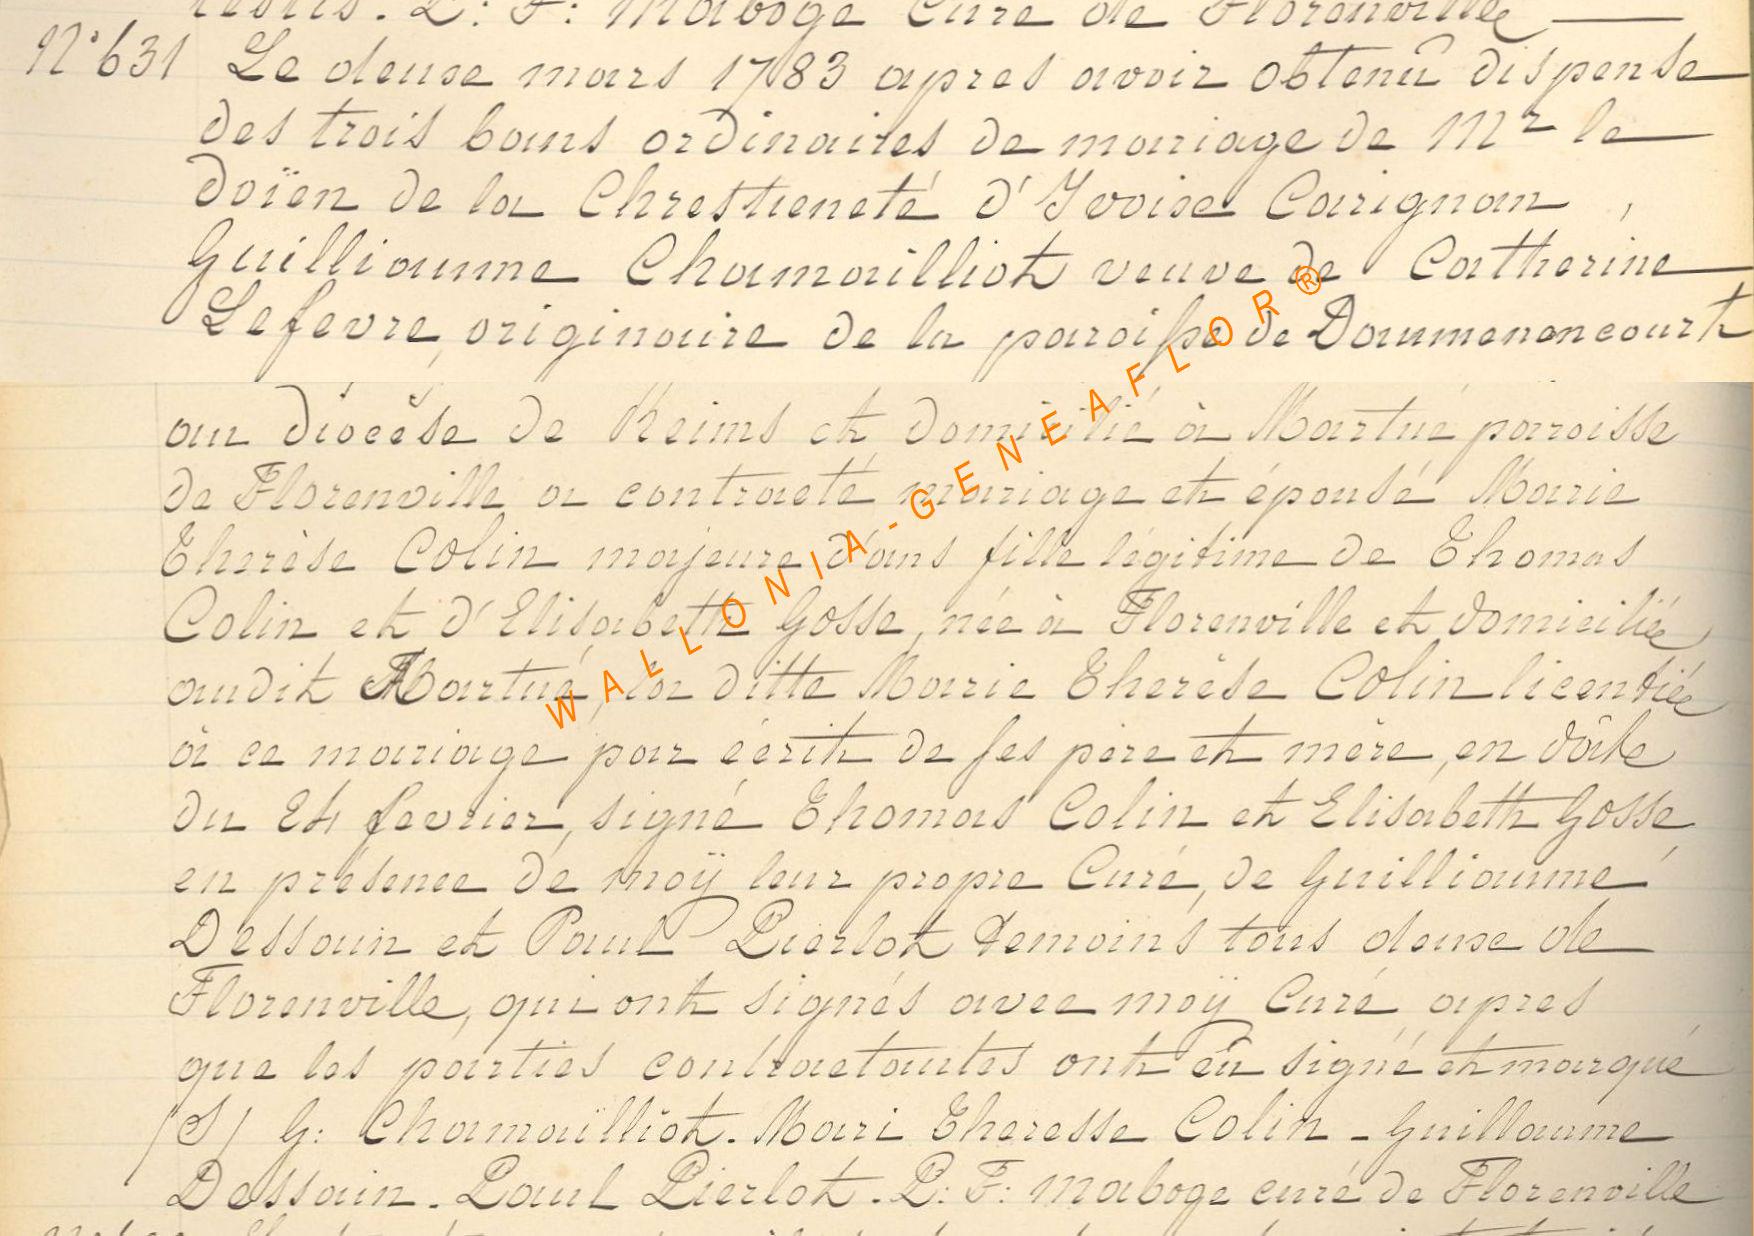 testes. L: F: Maboge Curé de Florenville
N° 631 Le deuxe mars 1783 apres avoir obtenû dispense
des trois bans ordinaires de mariage de Mr le
doïen de la Chrestieneté d'Yvoise Carignan,
Guilliaume Chamailliot veuve de Catherine
Lefevre, originaire de la paroisse de Doumenoncourt
au diocèse de Reims et domicilié à Martué paroisse
de Florenville a contracté mariage et épousé Marie
Therèse Colin majeure d'ans fille légitime de Thomas
Colin et d'Elisabeth Gosse, née à Florenville et domiciliée
audit Martué, la ditte Marie Therèse Colin licentiée
à ce mariage par écrit de ses père et mère, en dâte
du 24 fevrier, signé Thomas Colin et Elisabeth Gosse
en présence de moÿ leur propre Curé, de Guilliaume
Dessain et Paul Pierlot temoins tous deuxe de
Florenville, qui ont signés avec moÿ Curé apres
que les parties contractantes ont eû signé et marqué
(S) G: Chamaïlliot. Mari Theresse Colin - Guillaume
Dessain. Paul Pierlot. L: F: Maboge curé de Florenville
WALLONIA-GENEAFLOR®